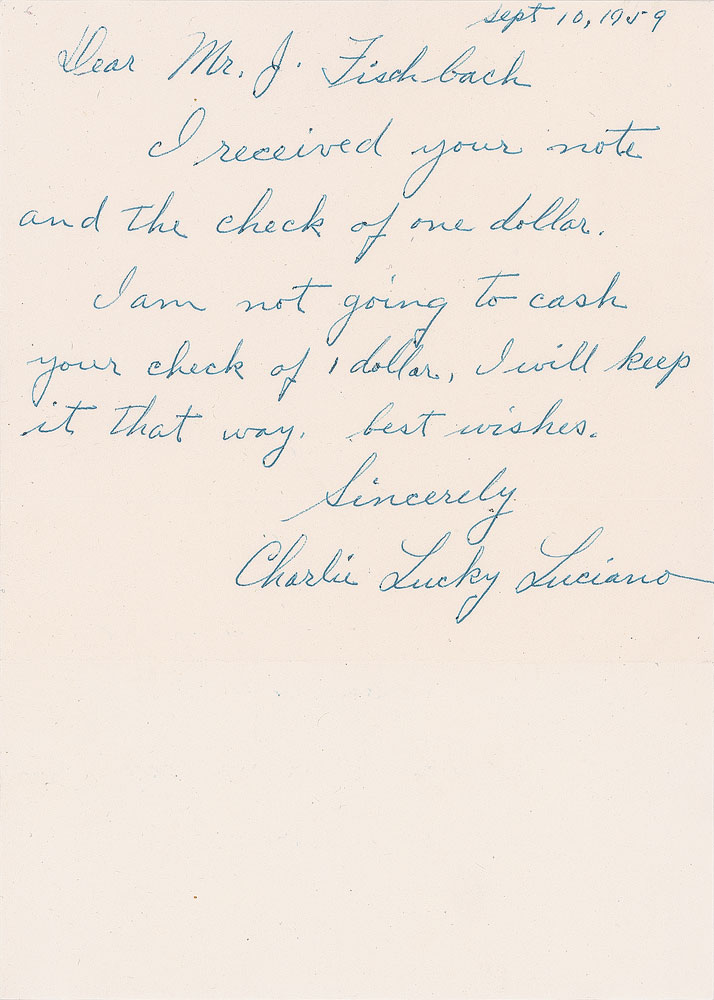 Sept 10, 1959
Dear Mr. J. Fischbach
I received your note
and the check of one dollar.
I am not going to cash
your check of 1 dollar, I will keep
it that way. best wishes.
Sincerely
Charlie Lucky Luciano